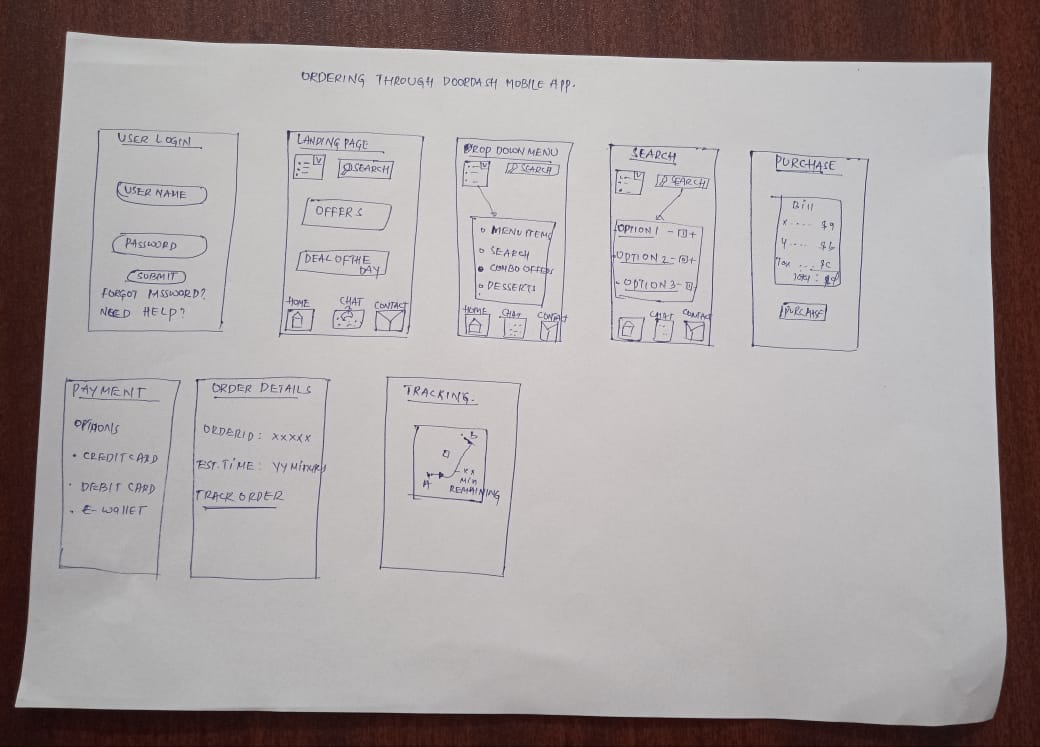 ORDERING THROUGH DOORDASH MOBILE APP.
USER LOGIN
USER NAME
PASSWORD
SUBMIT
FORGOT PASSWORD?
NEED HELP?
LANDING PAGE
V
SEARCH
OFFERS
DEAL OF THE
DAY
HOME CHAT CONTACT
DROP DOWN MENU
V
SEARCH
MENU ITEMS
SEARCH
COMBO OFFERS
DESSERTS
HOME CHAT CONTACT
SEARCH
V
SEARCH
OPTION 1 - +
OPTION 2 - +
- OPTION 3 - +
CHAT CONTACT
PURCHASE
Bill
x .... $a
y .... $b
Tax ... $c
Total: $d
PURCHASE
PAYMENT
OPTIONS
• CREDIT CARD
• DEBIT CARD
• E-WALLET
ORDER DETAILS
ORDER ID: XXXXX
EST. TIME: YY Minutes
TRACK ORDER
TRACKING.
B
A
- XX
Min
REMAINING